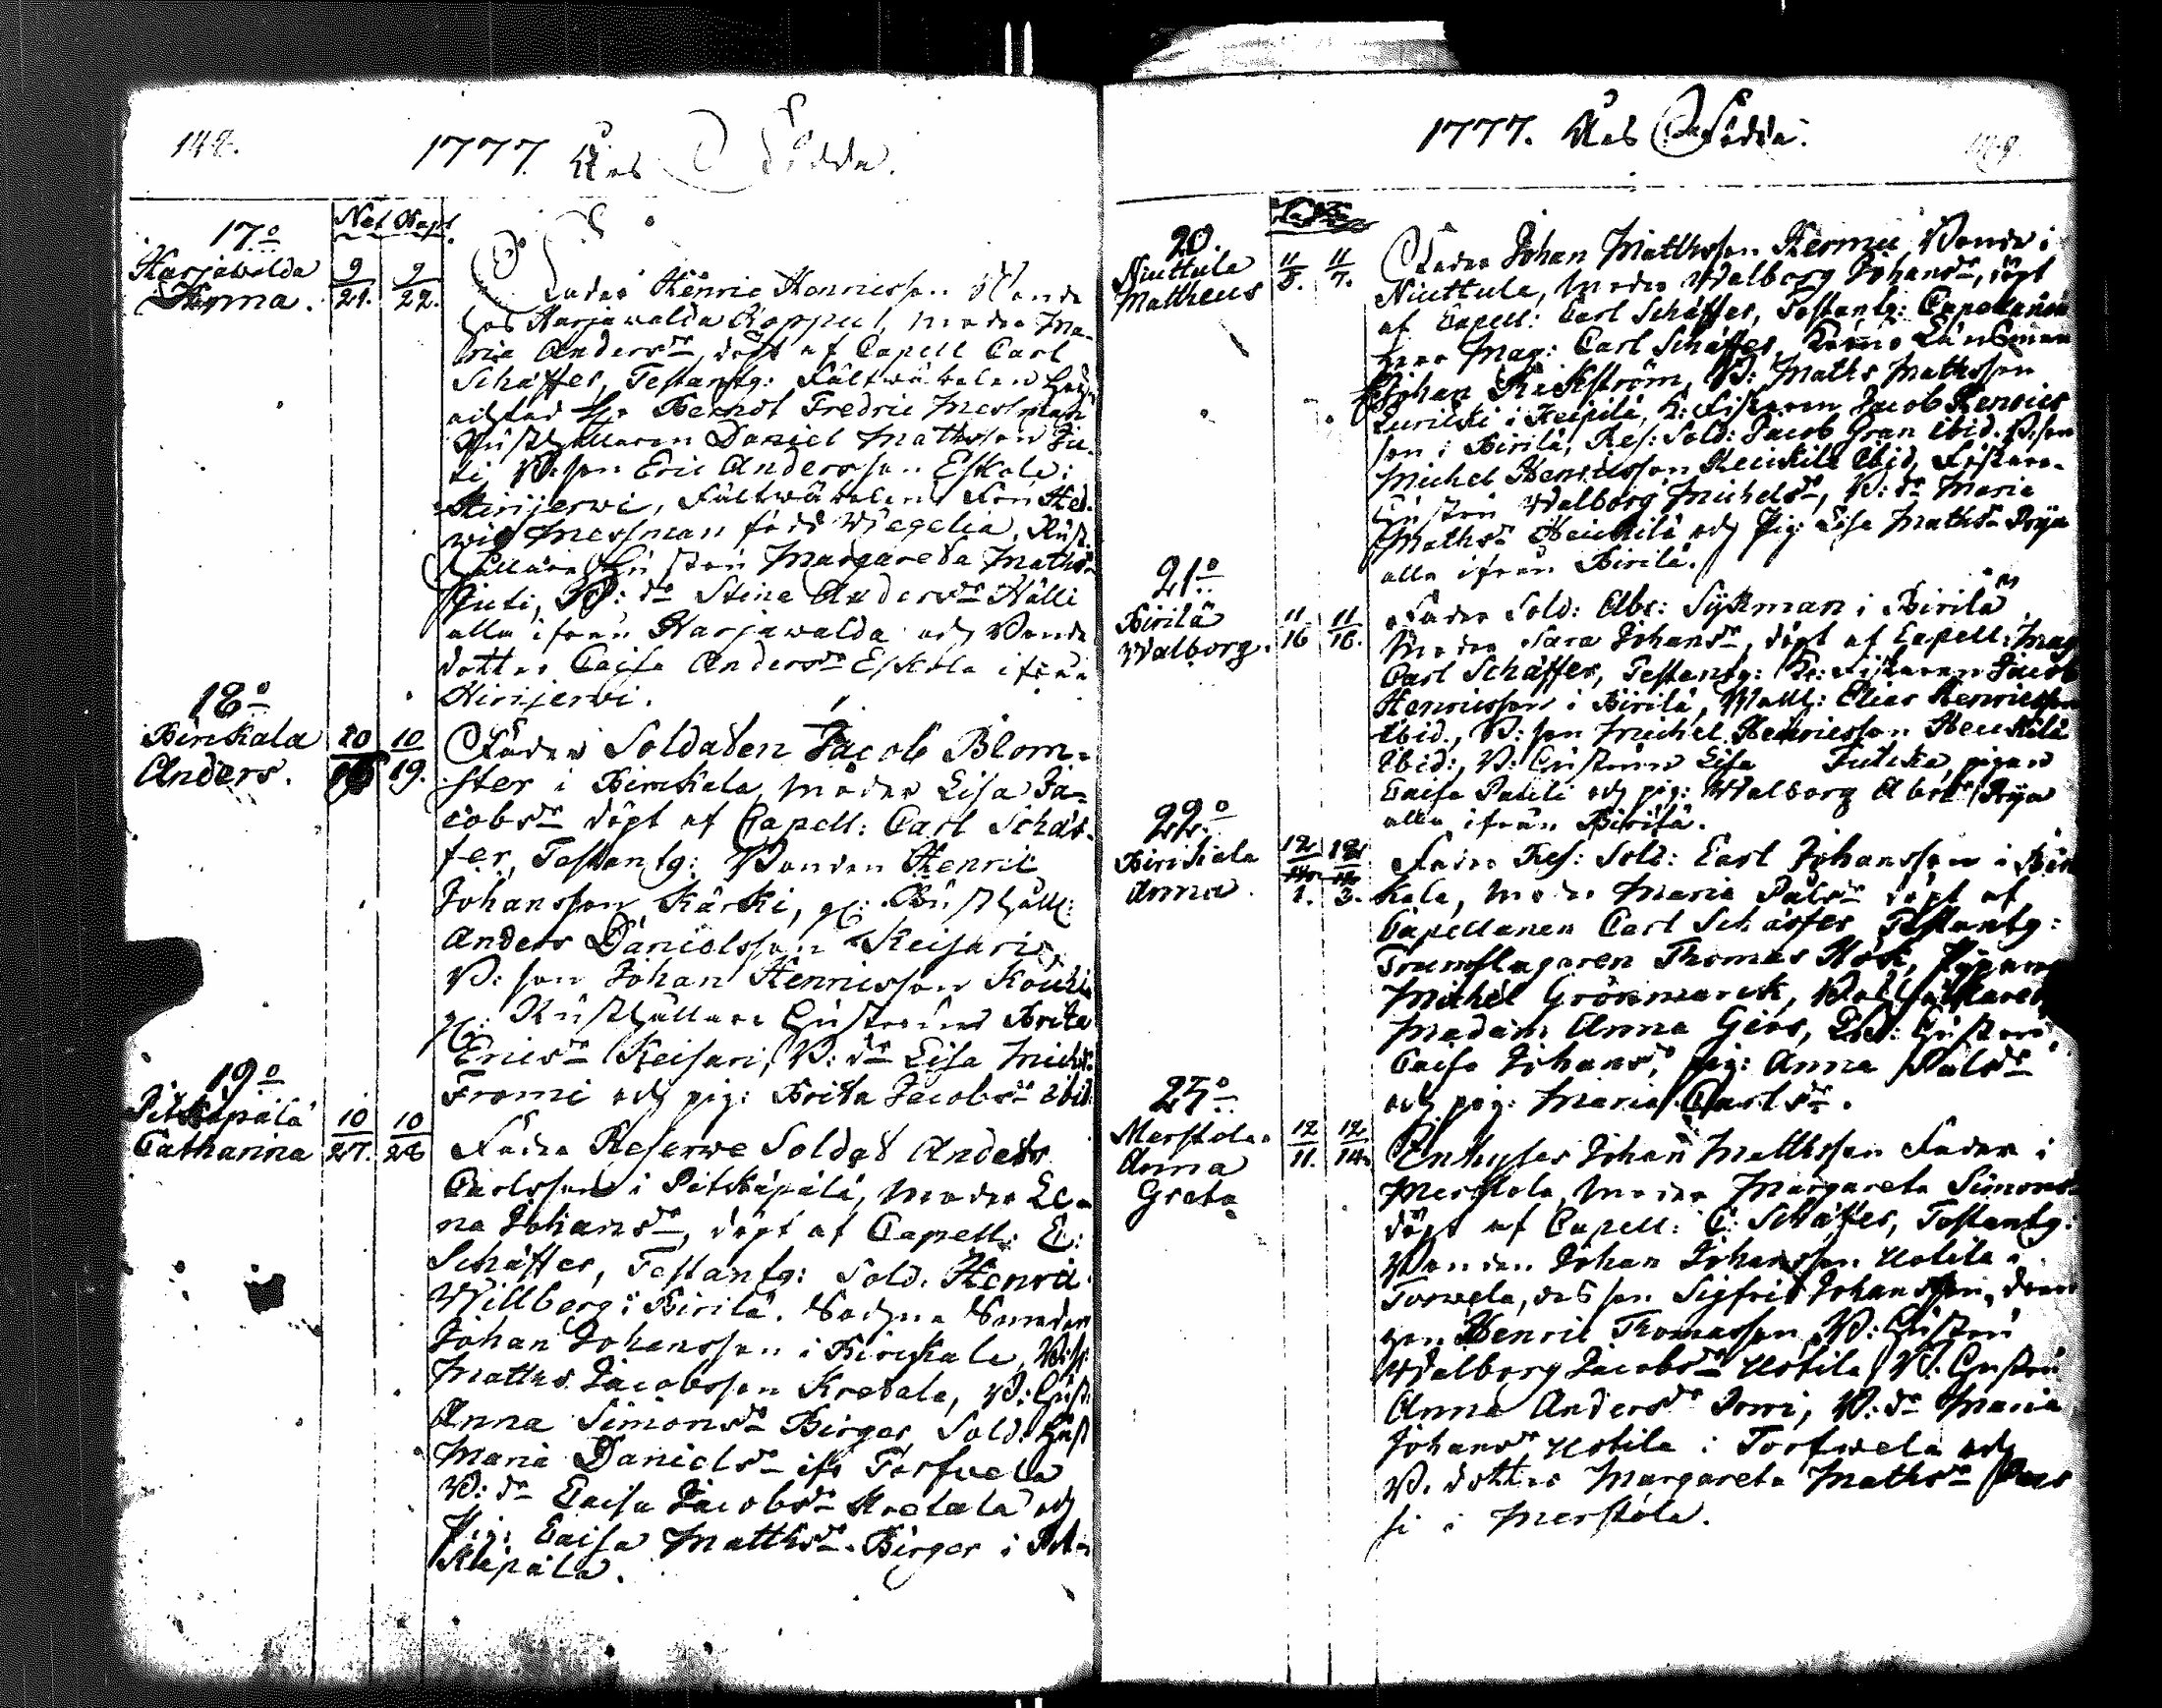 148.
1777. Års Födda.
Nat. Döpt.
17:o
Harjawalda
Anna.
9/21. 9/22.
Fader Henric Henricsson Bonde
hos Harjawalda Roppul, moder Ma-
ria Andersdr, döpt af Capell Carl
Schäffer, Testantg: Fältwäbelen
Herr Berndt Fredric Messman
Rusthållaren Daniel Mathsson Ju-
ti, B:son Eric Andersson Eskola:
Hirijerwi, Fältwäbelens Fru Hed-
wig Messman född Wegelia, Rust-
hållare Hustru Margareta Mathsdr
Juti, B: dr Stina Andersdr Hälli
alla ifrån Harjawalda och Bonde
dotter Caisa Andersdr Eskola ifrån
Hirijerwi.
18:o
Birckala
Anders.
10 10/19.
Fader Soldaten Jacob Blom-
ster i Birckala, moder Lisa Ja-
cobsdr döpt af Capell: Carl Schäf-
fer, Testantg: Bonden Henric
Johansson Kärki, Rusthåll:
Anders Danielsson Keisari,
B: son Johan Henricsson
Rusthållare Hustrun Brita
Ericsdr Keisari, B: dr Lisa Michelsdr
Fromi och pig: Brita Jacobsdr ibid.
19:o
Pitkäpälä
Catharina
10/27. 10/28
Fader Reserwe Soldat Anders
Carlsson i Pitkäpälä, moder Le-
na Johansdr, döpt af Capell: C:
Schäffer, Testantg: Sold. Henric
Willberg i Birilä.
Johan Johansson i Birckala,
Matths Jacobsson Kretala, B: Hust:
Anna Simonsdr Birger Sold: Hust
Maria Danielsdr ifr Torfwela
B: dr Caisa Jacobsdr Kretala och
Pig: Caisa Matthsdr Birger i Pit-
käpälä.
1777. Års Födda.
149.
20.
Niuttula
Mattheus
11/5. 11/7.
Fader Johan Matthsson Kermu, Bonde i
Niuttula, moder Walborg Johansdr, döpt
af Capell: Carl Schäffer, Testantg: Capellanen
Herr Mag: Carl Schäffer, Länsman
Johan Rickström, B: Maths Mathsson
i Heikilä, K: Fiskaren Jacob Henrics
son i Birilä, Res: Sold: Jacob Gran ibid. B:son
Michel Henricsson Heickilä ibid, Fiskare-
Hustru Walborg Michelsdr, B: dr Maria
Mathsdr Heickilä och Pig: Lisa Mathsdr
alla ifrån Birilä.
21:o
Birilä
Walborg.
11/16 11/18.
Fader Sold: Abr: Sijkman i Birilä
moder Sara Johansdr, döpt af Capell: Mag
Carl Schäffer, Testantg: Kr: Fiskaren Jacob
Henricsson i Birilä, Elias Henricsson
ibid., B: son Michel Henricsson Heickilä
ibid:, B: Hustrun Lisa pigan
Caisa Pauli och pig: Walborg Abrsdr
alla ifrån Birilä.
22:o
Birckala
Anna.
12/1. 12/3.
Fader Res: Sold: Carl Johansson i Birc
kala, moder Maria Pålsdr döpt af
Capellanen Carl Schäffer Testantg:
Trumslagaren Thomas Hök,
Michel Grönmarck,
Madam Anna Giers, Hustru
Caisa Johansdr, pig: Anna Pålsdr
och pig: Maria Carlsdr.
23:o
Merstola
Anna
Greta
12/11. 12/14.
Enhyses Johan Matthsson Fader i
Merstola, moder Margareta Simonsdr
döpt af Capell: C: Schäffer, Testantg:
Bonden Johan Johansson Uotila
Torwela, des son Sigfrid Johansson, dren
gen Henric Thomasson, B: Hustru
Walborg Jacobsdr Uotila, B: Hustru
Anna Andersdr, B: dr Maria
Johansdr Uotila i Torfwela och
B. dotter Margareta Mathsdr Pas
si i Merstola.